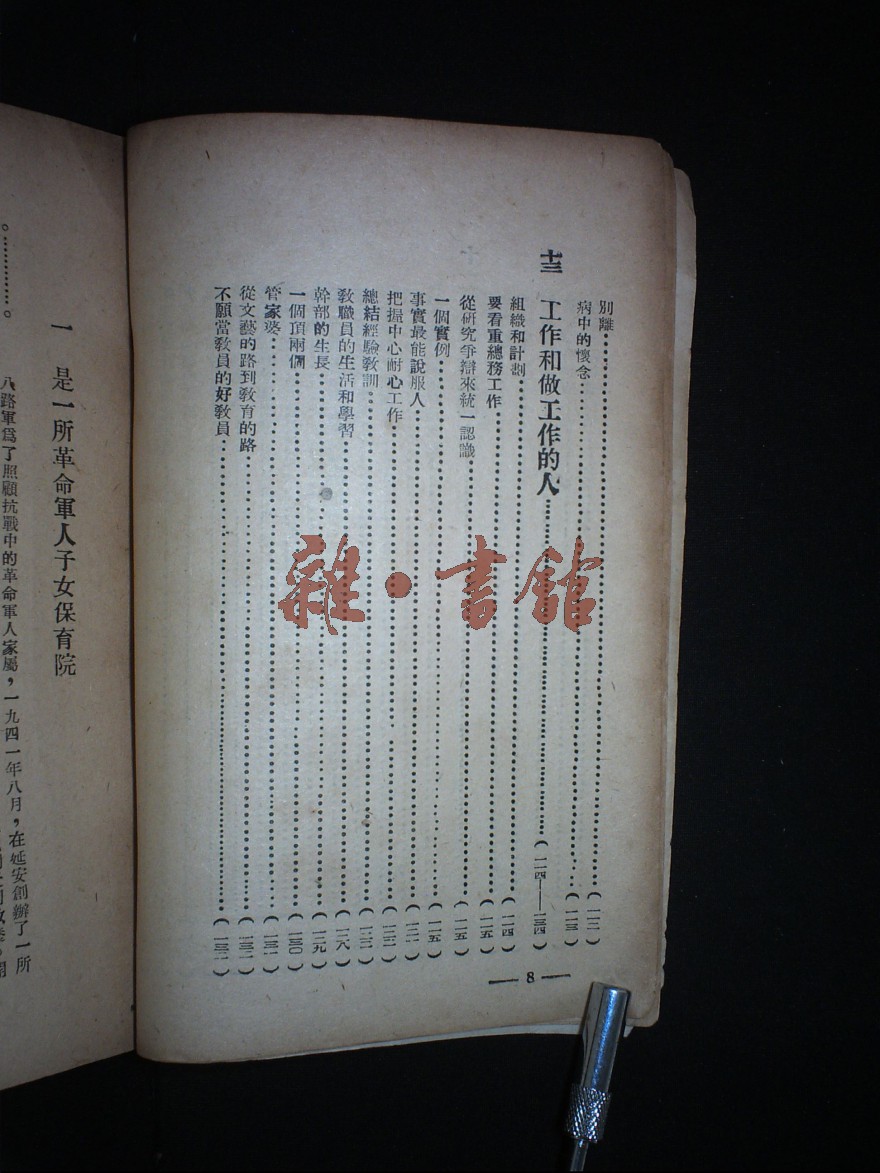 別離……(一一二)
病中的懷念……(一一三)
十三 工作和做工作的人……(一一四——一三四)
組織和計劃……(一一四)
要看重總務工作……(一一五)
從研究爭辯來統一認識……(一一五)
一個實例……(一一五)
事實最能說服人……
把握中心耐心工作……
總結經驗教訓……
教職員的生活和學習……(一二八)
幹部的生長……(一二九)
一個頂兩個……(一三〇)
管家婆……(一三一)
從文藝的路到教育的路……
不願當教員的好教員……
— 8 —
一 是一所革命軍人子女保育院
八路軍爲了照顧抗戰中的革命軍人家屬，一九四一年八月，在延安創辦了一所
雜·書館